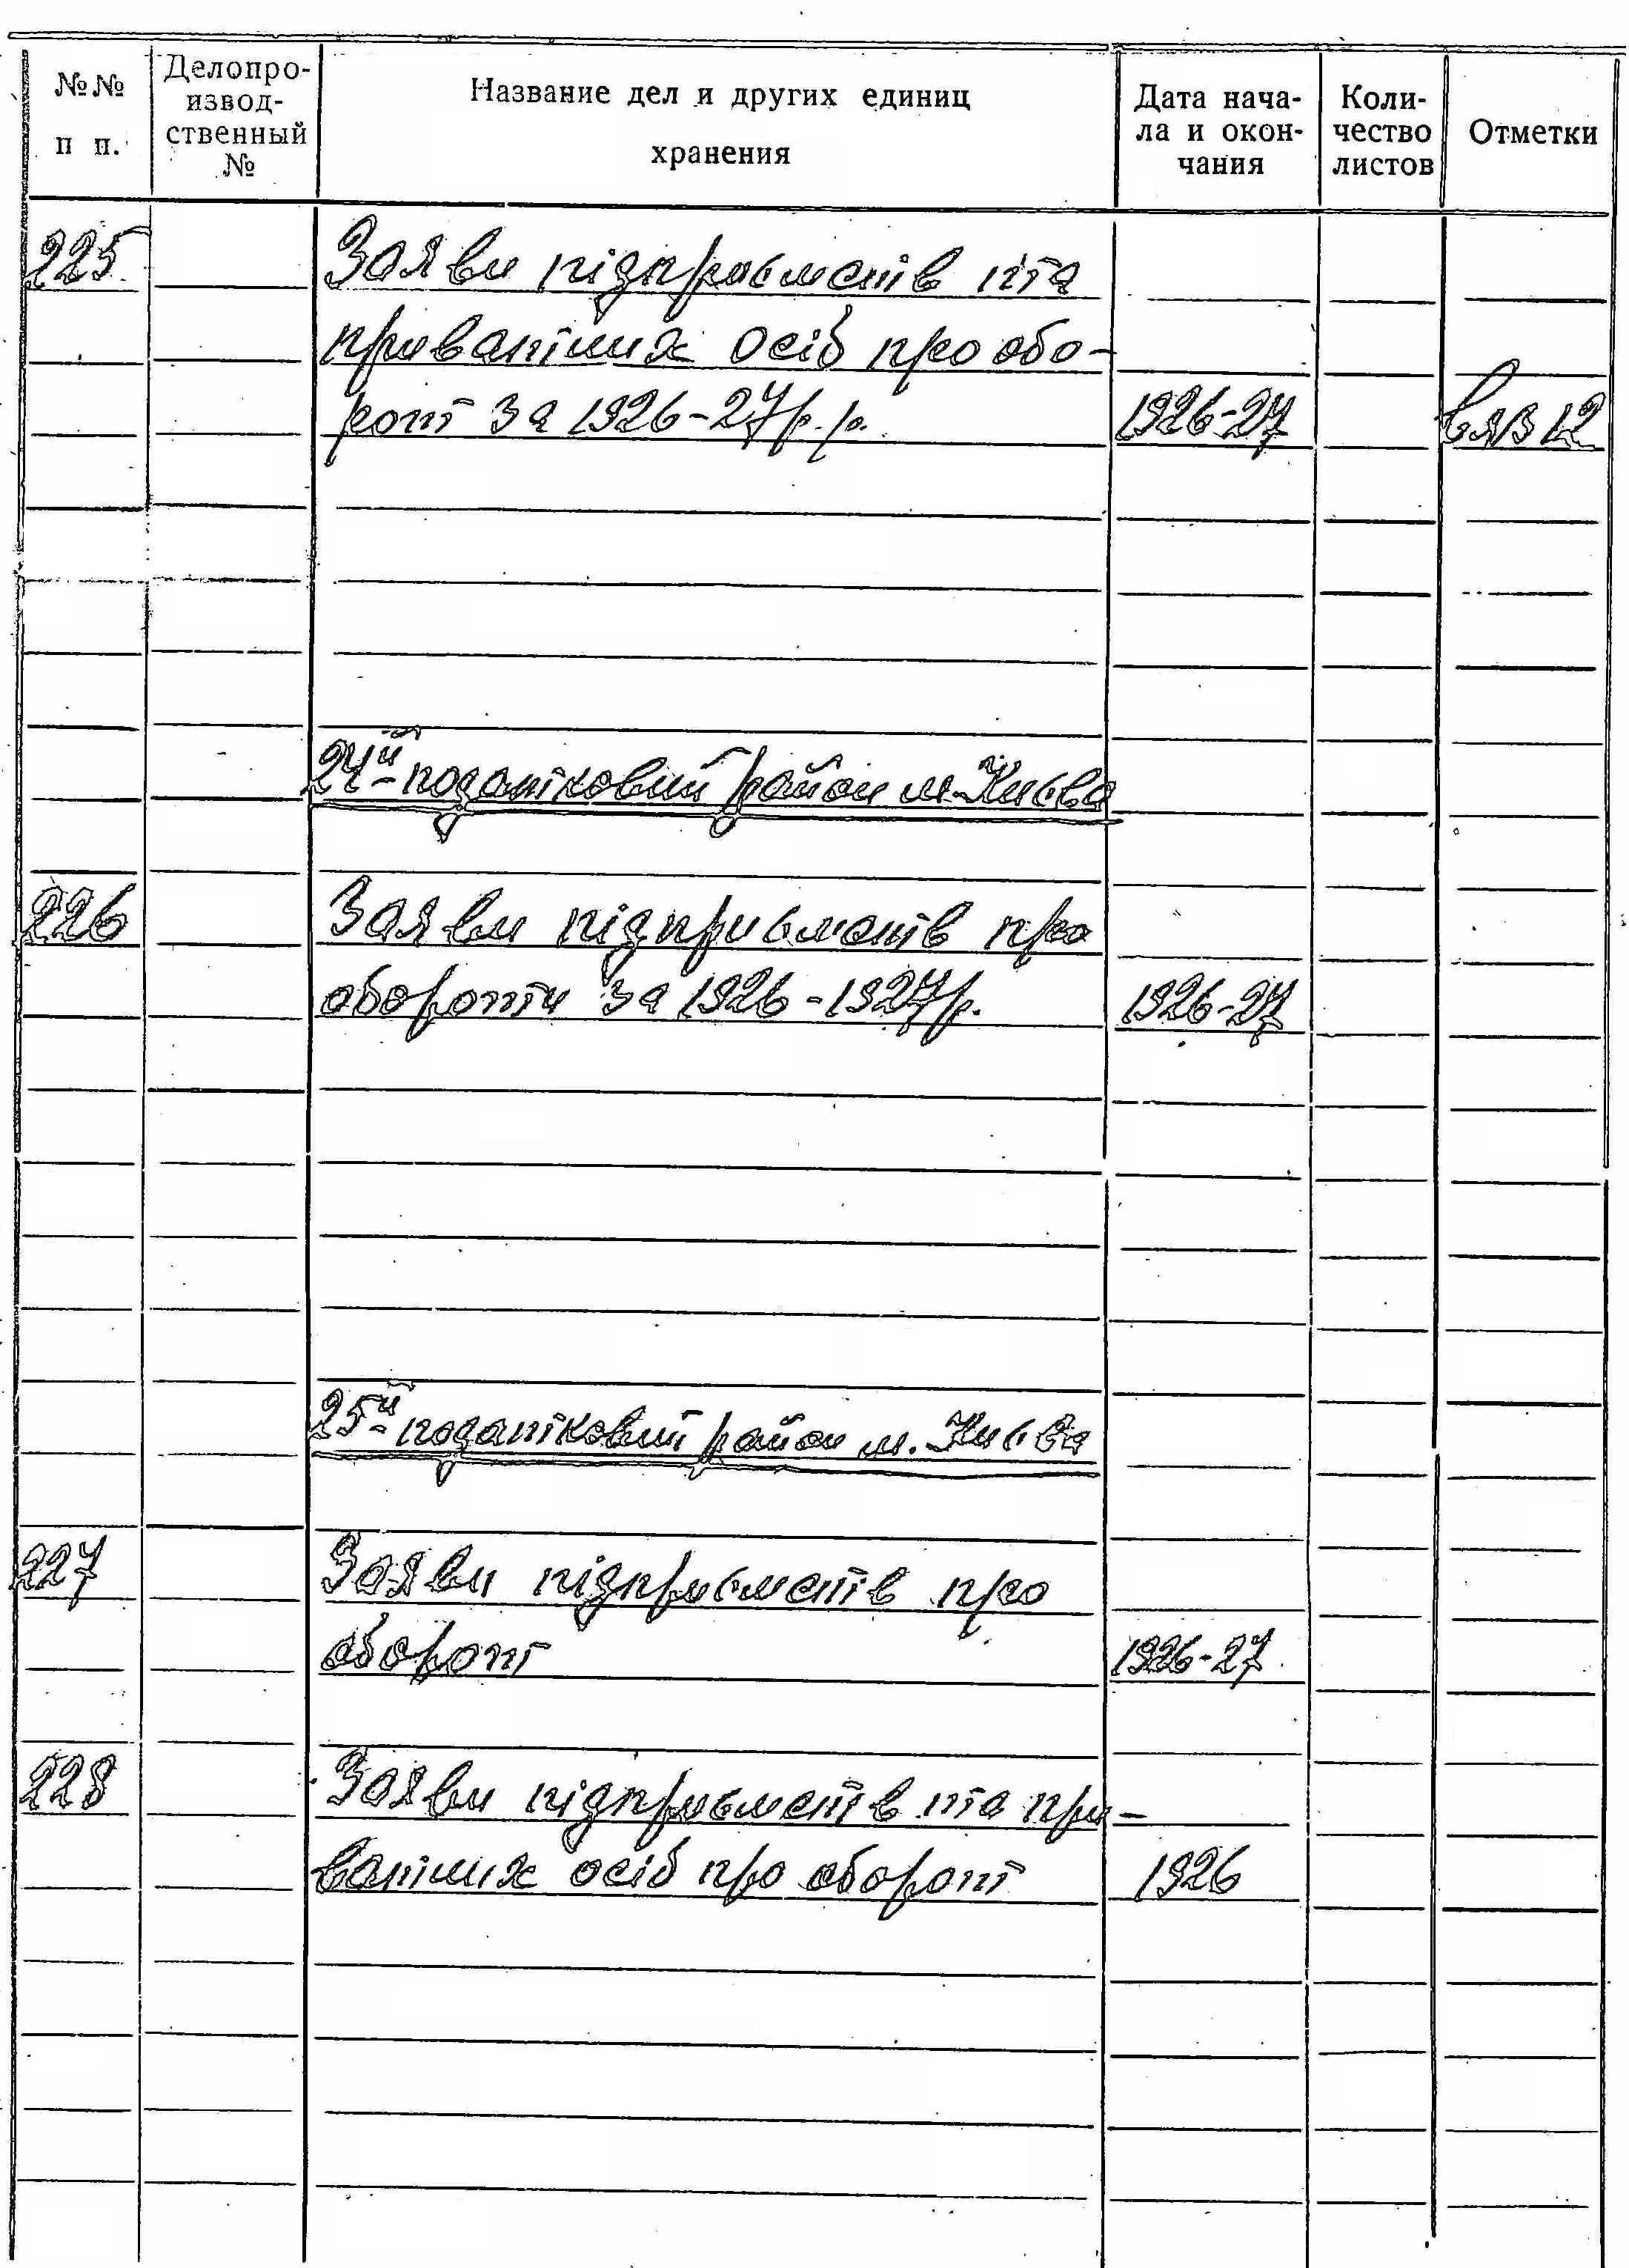 №№ п п. Делопро-изводственный № Название дел и других единиц хранения Дата начала и окончания Количество листов Отметки
225 Заяви підприємств та
приватних осіб про обо-
рот за 1926-27р.р. 1926-27 вяз 12
24й податковий район м. Києва
226 Заяви підприємств про
обороти за 1926-1927р. 1926-27
25й податковий район м. Києва
227 Заяви підприємств про
оборот 1926-27
228 Заяви підприємств та при-
ватних осіб про оборот 1926